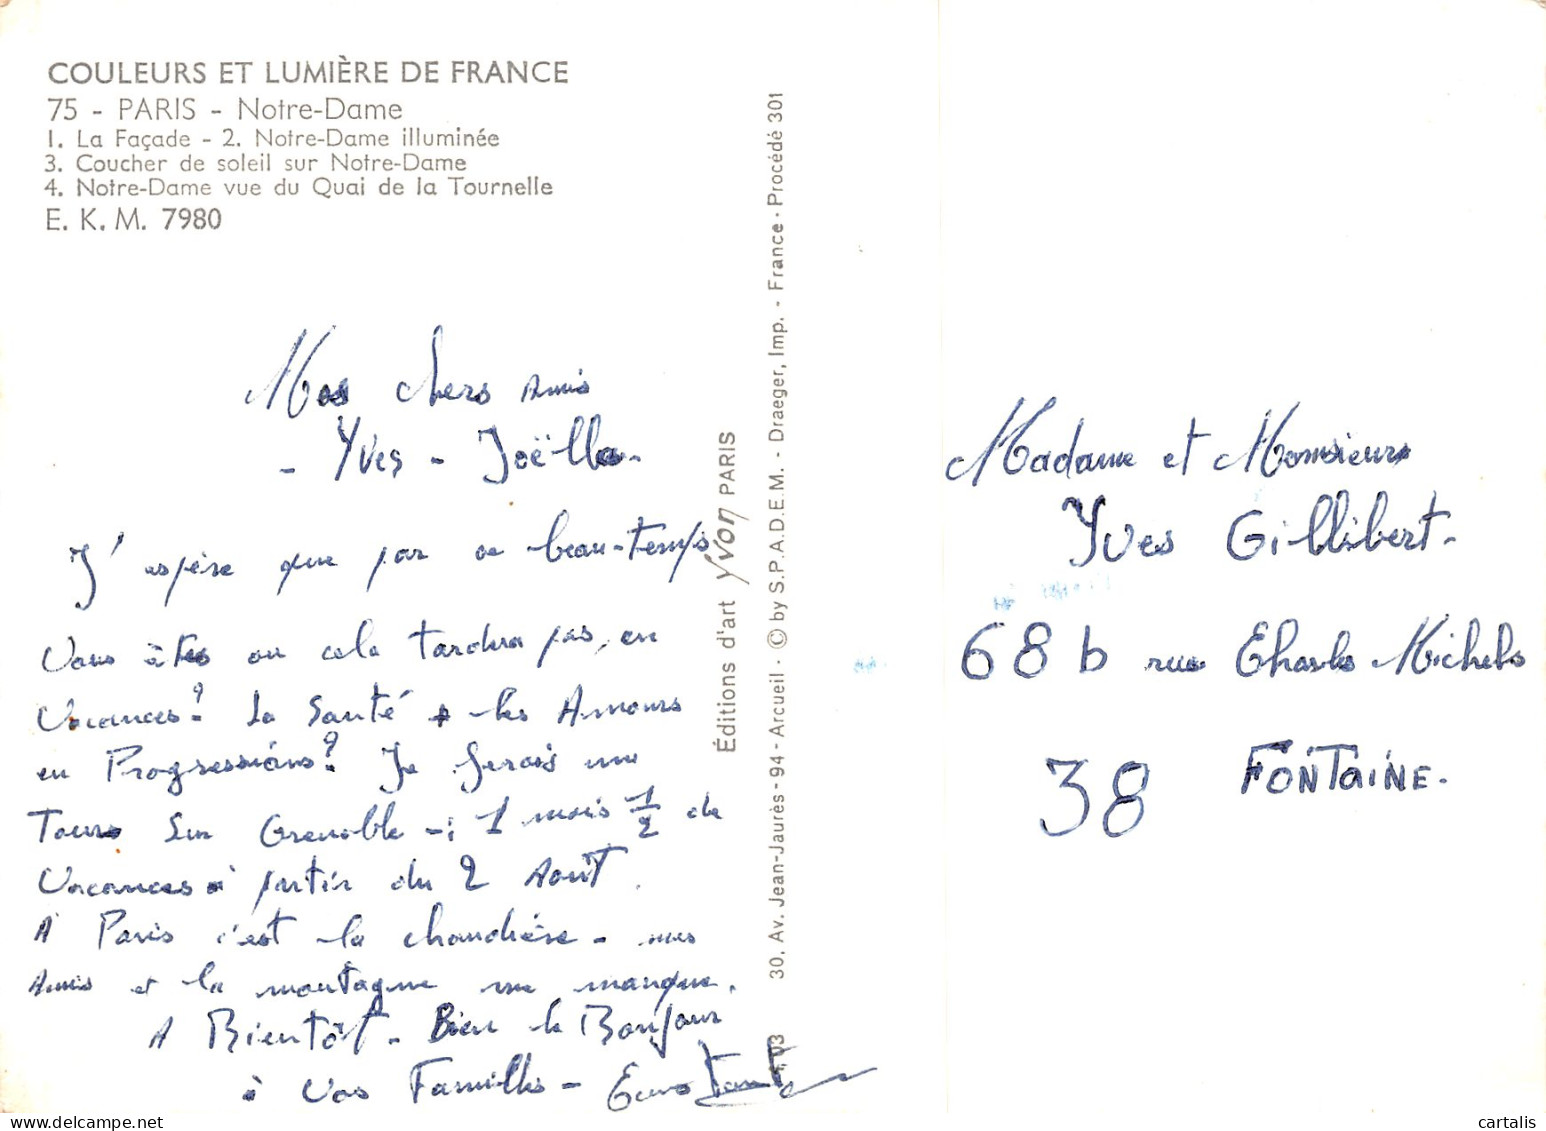 COULEURS ET LUMIÈRE DE FRANCE
75 - PARIS - Notre-Dame
1. La Façade - 2. Notre-Dame illuminée
3. Coucher de soleil sur Notre-Dame
4. Notre-Dame vue du Quai de la Tournelle
E. K. M. 7980
Mes chers Amis
- Yves - Joëlle -
J'espère que par ce beau-temps
Vous êtes ou cela tardera pas, en
Vacances? La Santé + les Amours
en Progressions? Je ferais une
Tour sur Grenoble -: 1 mois 1/2 de
Vacances à partir du 2 Août.
A Paris c'est la chaudière - mes
Amis et la montagne me manque.
A Bientôt - Bien le Bonjour
à Vos Familles -
Éditions d'art Yvon PARIS
30, Av. Jean-Jaurès - 94 - Arcueil - © by S.P.A.D.E.M. - Draeger, Imp. - France - Procédé 301
Madame et Monsieur
Yves Gillibert -
68 b rue Charles Michels
38 FONTAINE -
cartalis
www.delcampe.net